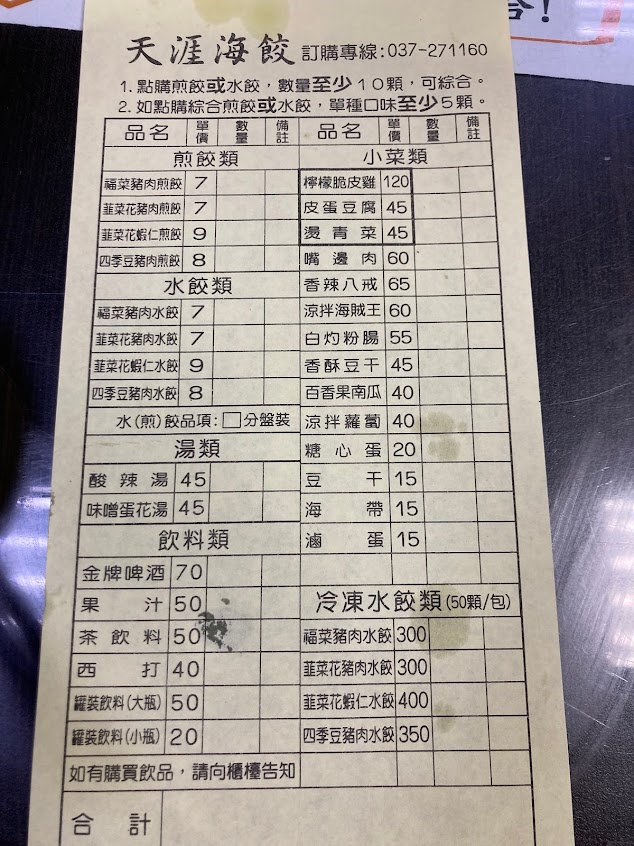 合!
天涯海餃 訂購專線:037-271160
1. 點購煎餃或水餃，數量至少10顆，可綜合。
2. 如點購綜合煎餃或水餃，單種口味至少5顆。
品名 單價 數量 備註 品名 單價 數量 備註
煎餃類 小菜類
福菜豬肉煎餃 7 檸檬脆皮雞 120
韮菜花豬肉煎餃 7 皮蛋豆腐 45
韮菜花蝦仁煎餃 9 燙青菜 45
四季豆豬肉煎餃 8 嘴邊肉 60
水餃類 香辣八戒 65
福菜豬肉水餃 7 涼拌海賊王 60
韮菜花豬肉水餃 7 白灼粉腸 55
韮菜花蝦仁水餃 9 香酥豆干 45
四季豆豬肉水餃 8 百香果南瓜 40
水(煎)餃品項:□分盤裝 涼拌蘿蔔 40
湯類 糖心蛋 20
酸辣湯 45 豆干 15
味噌蛋花湯 45 海帶 15
飲料類 滷蛋 15
金牌啤酒 70
果汁 50 冷凍水餃類(50顆/包)
茶飲料 50 福菜豬肉水餃 300
西打 40 韮菜花豬肉水餃 300
罐裝飲料(大瓶) 50 韮菜花蝦仁水餃 400
罐裝飲料(小瓶) 20 四季豆豬肉水餃 350
如有購買飲品，請向櫃檯告知
合計